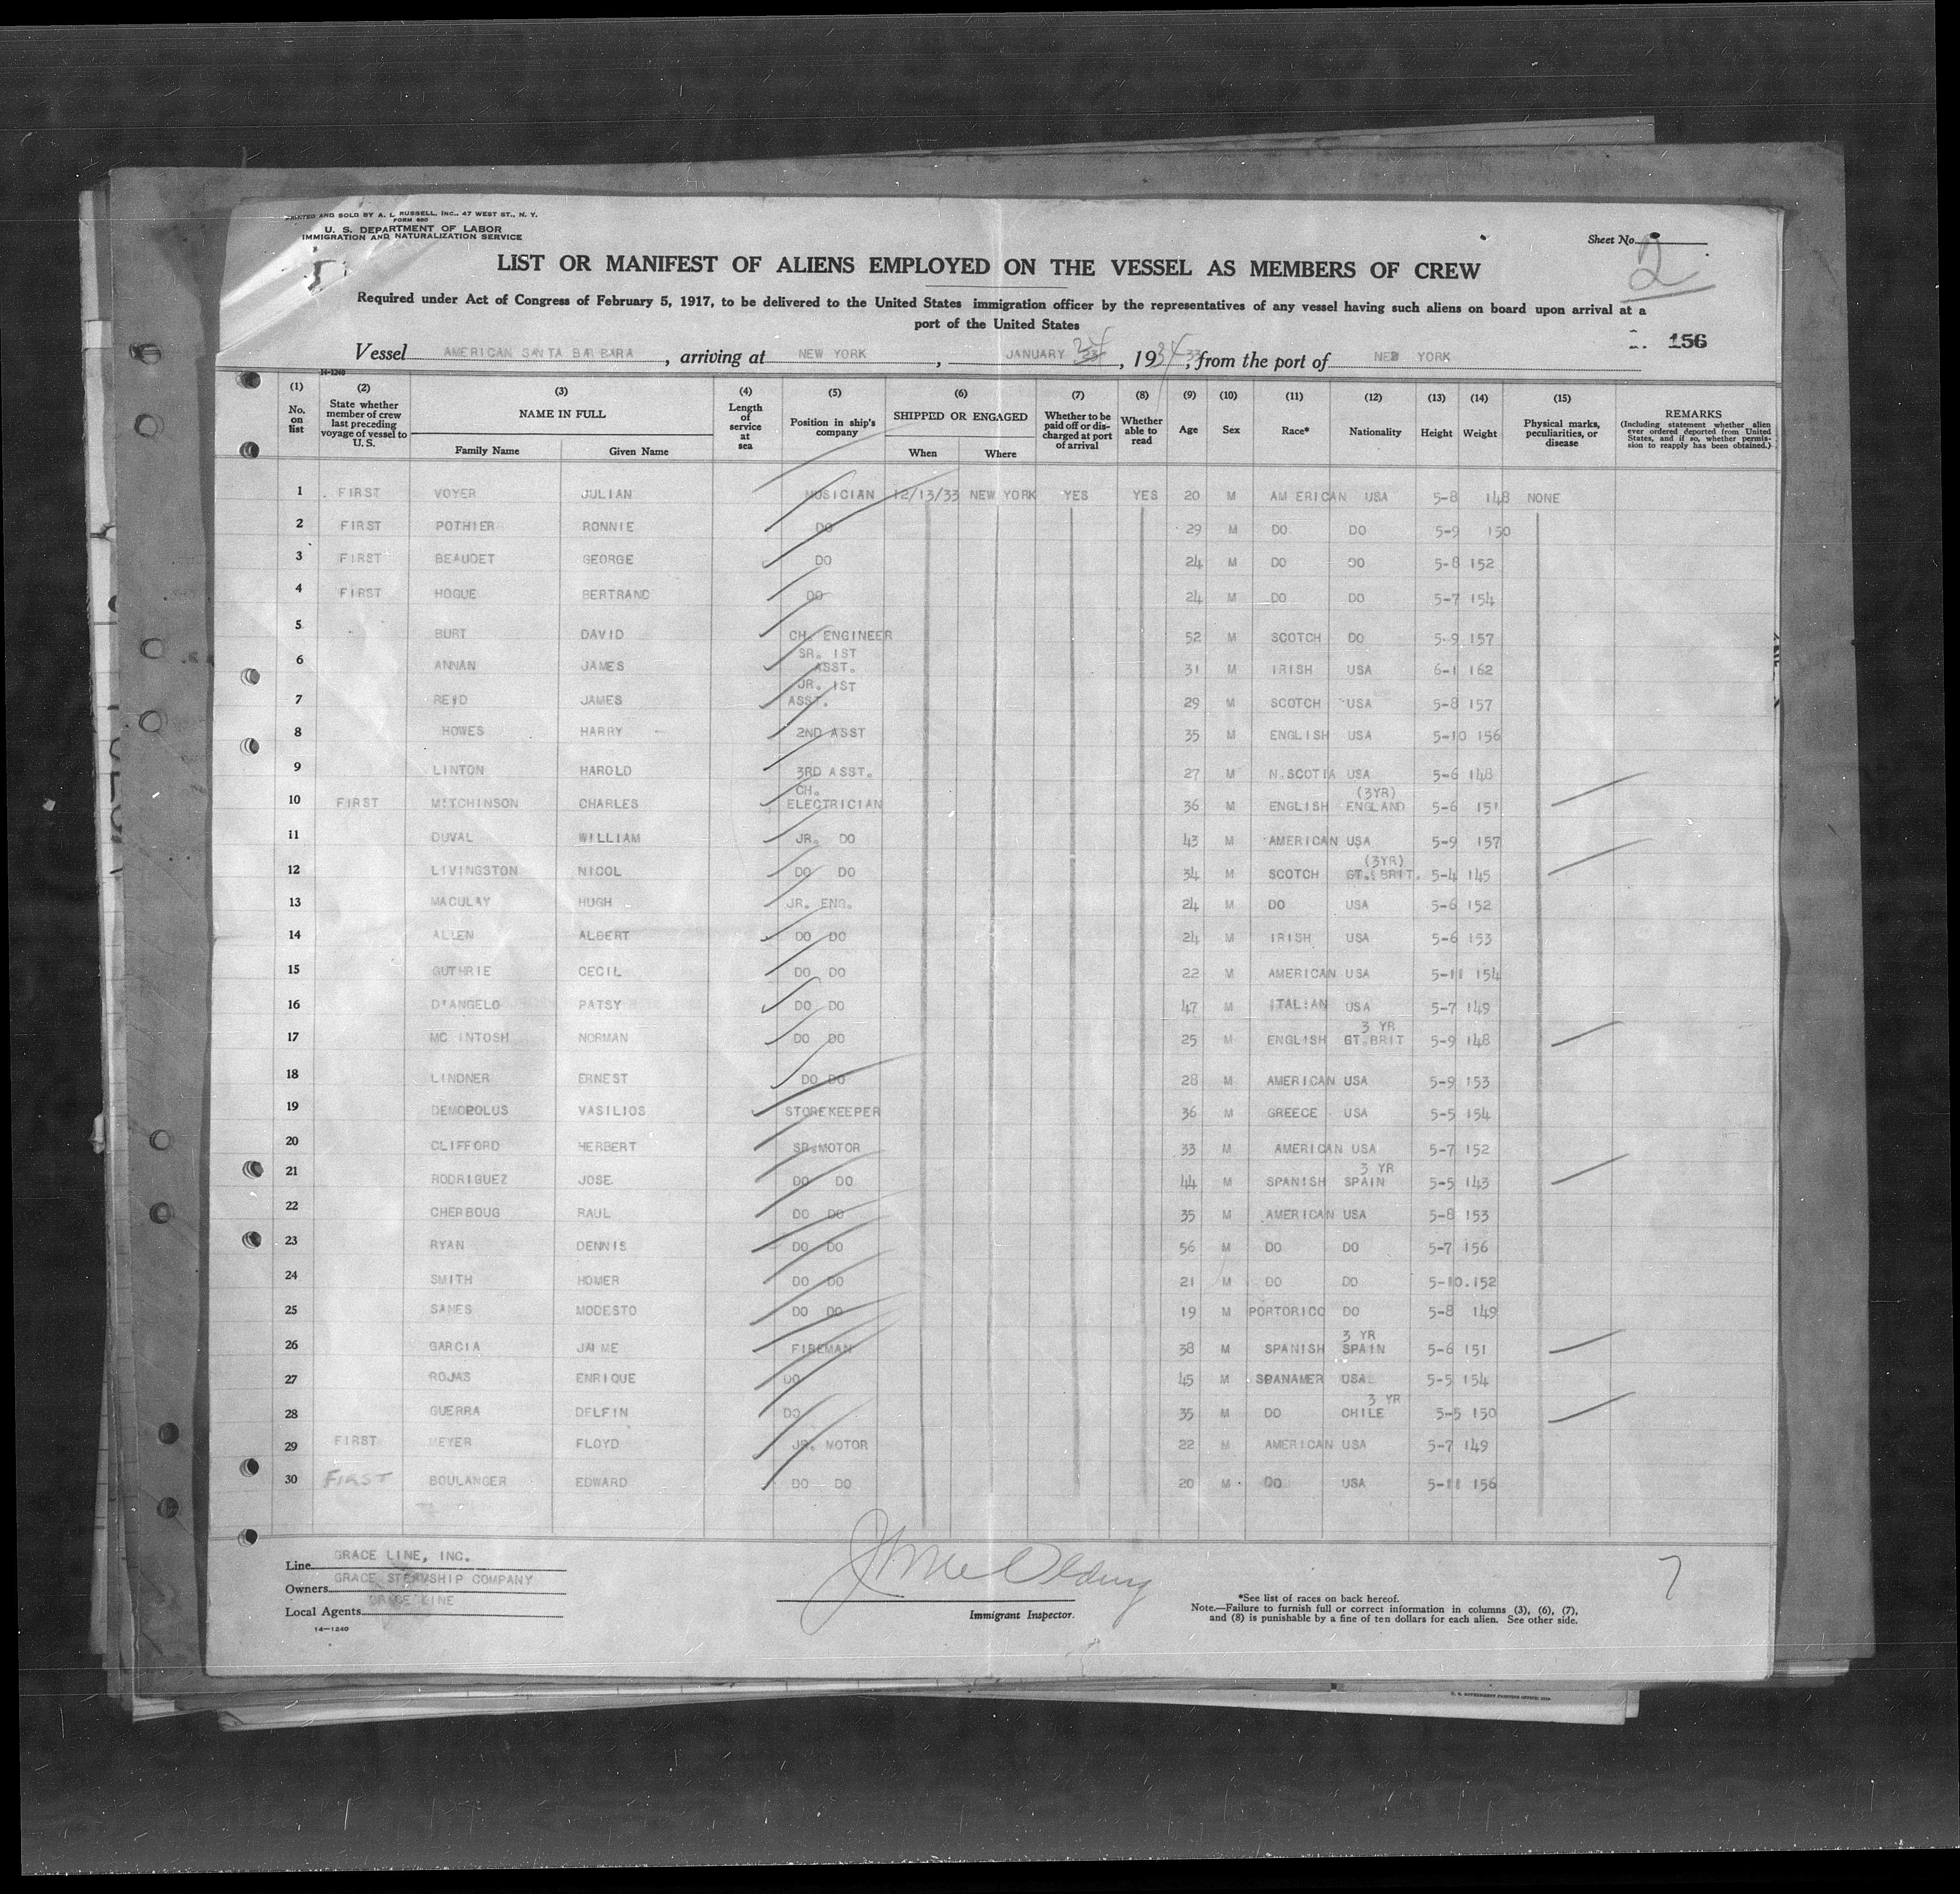 PRINTED AND SOLD BY A. L. RUSSELL, INC., 47 WEST ST., N. Y.
FORM 680
U. S. DEPARTMENT OF LABOR
IMMIGRATION AND NATURALIZATION SERVICE
Sheet No. 2
LIST OR MANIFEST OF ALIENS EMPLOYED ON THE VESSEL AS MEMBERS OF CREW
Required under Act of Congress of February 5, 1917, to be delivered to the United States immigration officer by the representatives of any vessel having such aliens on board upon arrival at a
port of the United States
156
Vessel AMERICAN SANTA BARBARA, arriving at NEW YORK, JANUARY 24, 1934, from the port of NEW YORK
14-1240
(1) No. on list (2) State whether member of crew last preceding voyage of vessel to U. S. (3) NAME IN FULL Family Name Given Name (4) Length of service at sea (5) Position in ship's company (6) SHIPPED OR ENGAGED When Where (7) Whether to be paid off or discharged at port of arrival (8) Whether able to read (9) Age (10) Sex (11) Race* (12) Nationality (13) Height (14) Weight (15) Physical marks, peculiarities, or disease REMARKS (Including statement whether alien ever ordered deported from United States, and if so, whether permission to reapply has been obtained.)
1 FIRST VOYER JULIAN MUSICIAN 12/13/33 NEW YORK YES YES 20 M AMERICAN USA 5-8 148 NONE
2 FIRST POTHIER RONNIE DO 29 M DO DO 5-9 150
3 FIRST BEAUDET GEORGE DO 24 M DO DO 5-8 152
4 FIRST HOGUE BERTRAND DO 24 M DO DO 5-7 154
5 BURT DAVID CH. ENGINEER 52 M SCOTCH DO 5-9 157
6 ANNAN JAMES SR. 1ST ASST. 31 M IRISH USA 6-1 162
7 REID JAMES JR. 1ST ASST. 29 M SCOTCH USA 5-8 157
8 HOWES HARRY 2ND ASST 35 M ENGLISH USA 5-10 156
9 LINTON HAROLD 3RD ASST. 27 M N.SCOTIA USA 5-6 148
10 FIRST MITCHINSON CHARLES CH. ELECTRICIAN 36 M ENGLISH (3YR) ENGLAND 5-6 151
11 DUVAL WILLIAM JR. DO 43 M AMERICAN USA 5-9 157
12 LIVINGSTON NICOL DO DO 34 M SCOTCH (3YR) GT. BRIT. 5-4 145
13 MACULAY HUGH JR. ENG. 24 M DO USA 5-6 152
14 ALLEN ALBERT DO DO 24 M IRISH USA 5-6 153
15 GUTHRIE CECIL DO DO 22 M AMERICAN USA 5-11 154
16 D'ANGELO PATSY DO DO 47 M ITALIAN USA 5-7 149
17 MC INTOSH NORMAN DO DO 25 M ENGLISH 3 YR GT.BRIT 5-9 148
18 LINDNER ERNEST DO DO 28 M AMERICAN USA 5-9 153
19 DEMOPOLUS VASILIOS STOREKEEPER 36 M GREECE USA 5-5 154
20 CLIFFORD HERBERT SR.MOTOR 33 M AMERICAN USA 5-7 152
21 RODRIGUEZ JOSE DO DO 44 M SPANISH 3 YR SPAIN 5-5 143
22 CHERBOUG RAUL DO DO 35 M AMERICAN USA 5-8 153
23 RYAN DENNIS DO DO 56 M DO DO 5-7 156
24 SMITH HOMER DO DO 21 M DO DO 5-10 152
25 SANES MODESTO DO DO 19 M PORTORICO DO 5-8 149
26 GARCIA JAIME FIREMAN 38 M SPANISH 3 YR SPAIN 5-6 151
27 ROJAS ENRIQUE DO 45 M SPANAMER USA 5-5 154
28 GUERRA DELFIN DO 35 M DO 3 YR CHILE 5-5 150
29 FIRST MEYER FLOYD JR. MOTOR 22 M AMERICAN USA 5-7 149
30 FIRST BOULANGER EDWARD DO DO 20 M DO USA 5-11 156
Line GRACE LINE, INC.
Owners GRACE STEAMSHIP COMPANY
Local Agents GRACE LINE
14—1240
Immigrant Inspector.
*See list of races on back hereof.
Note.—Failure to furnish full or correct information in columns (3), (6), (7),
and (8) is punishable by a fine of ten dollars for each alien. See other side.
7